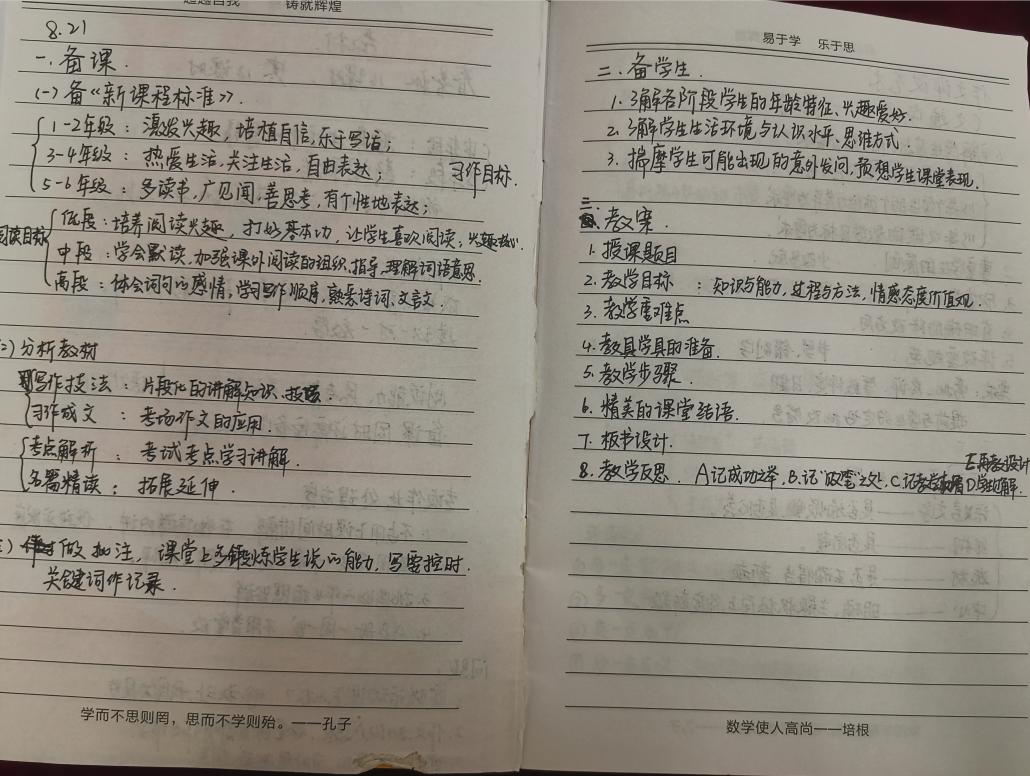 超越自我 铸就辉煌
8.21
一、备课.
(一)备《新课程标准》.
1-2年级：激发兴趣，培植自信，乐于写话；
3-4年级：热爱生活，关注生活，自由表达；
习作目标.
5-6年级：多读书，广见闻，善思考，有个性地表达；
阅读目标
低段：培养阅读兴趣，打好基本功，让学生喜欢阅读，兴趣
中段：学会默读，加强课外阅读的组织、指导，理解词语意思.
高段：体会词句的感情，学习写作顺序，熟悉诗词、文言文.
二)分析教材
写作技法：片段化的讲解知识、
习作成文：考场作文的应用.
考点解析：考试考点学习讲解.
名篇精读：拓展延伸.
三)做批注，课堂上多锻炼学生说的能力，写要控时.
关键词作记录.
学而不思则罔，思而不学则殆。——孔子
易于学 乐于思
二、备学生.
1.了解各阶段学生的年龄特征、兴趣爱好.
2.了解学生生活环境与认识水平、思维方式.
3.揣摩学生可能出现的意外发问，预想学生课堂表现.
三、教案.
1.授课题目
2.教学目标：知识与能力，过程与方法，情感态度价值观.
3.教学重难点
4.教具学具的准备.
5.教学步骤.
6.精美的课堂结语.
7.板书设计.
E.再教设计
8.教学反思. A记成功之举，B.记"败笔"之处，C.记教学 D.学生见解.
数学使人高尚——培根